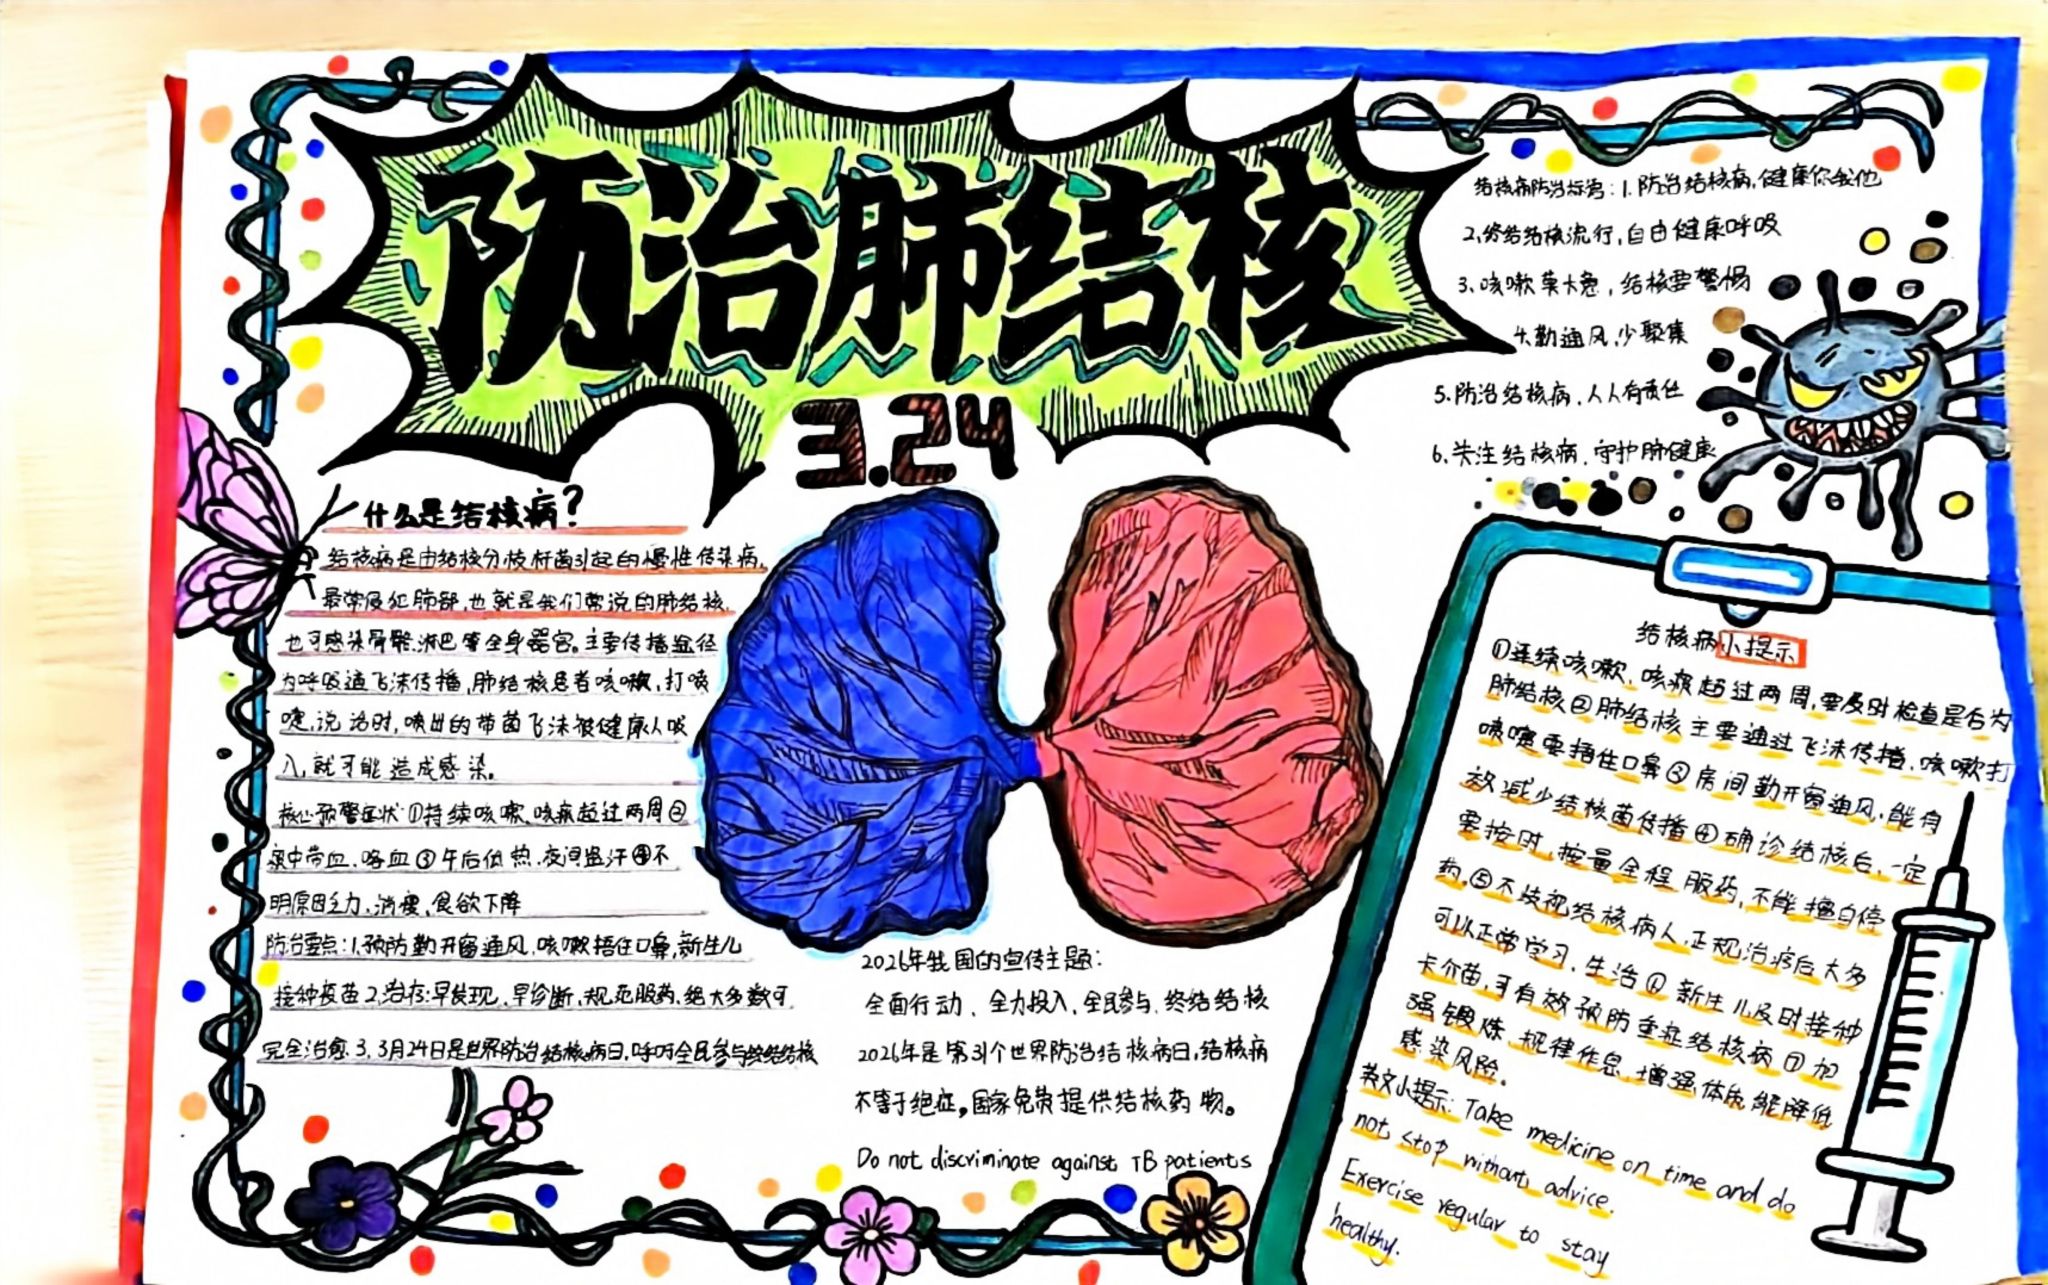 防治肺结核
3.24
结核病防治标语：1.防治结核病,健康你我他
2.终结结核流行,自由健康呼吸
3.咳嗽莫大意，结核要警惕
4.勤通风,少聚集
5.防治结核病,人人有责任
6.关注结核病,守护肺健康
什么是结核病?
结核病是由结核分枝杆菌引起的慢性传染病,
最常侵犯肺部,也就是我们常说的肺结核,
也可感染骨骼.淋巴等全身器官。主要传播途径
为呼吸道飞沫传播,肺结核患者咳嗽,打喷
嚏,说话时,喷出的带菌飞沫被健康人吸
入,就可能造成感染。
核心预警症状①持续咳嗽.咳痰超过两周②
痰中带血.咯血③午后低热.夜间盗汗④不
明原因乏力.消瘦.食欲下降
防治要点:1.预防勤开窗通风.咳嗽捂住口鼻,新生儿
接种疫苗2.治疗:早发现.早诊断,规范服药.绝大多数可
完全治愈.3.3月24日是世界防治结核病日,呼吁全民参与终结结核
2026年我国的宣传主题:
全面行动、全力投入,全民参与.终结结核
2026年是第31个世界防治结核病日,结核病
不等于绝症,国家免费提供结核药物。
Do not discriminate against TB patients
结核病小提示
①连续咳嗽、咳痰超过两周,要及时检查是否为
肺结核②肺结核主要通过飞沫传播.咳嗽打
喷嚏要捂住口鼻③房间勤开窗通风,能有
效减少结核菌传播④确诊结核后,一定
要按时,按量全程服药,不能擅自停
药.⑤不歧视结核病人,正规治疗后大多
可以正常学习、生活⑥新生儿及时接种
卡介苗,可有效预防重症结核病⑦加
强锻炼.规律作息,增强体质能降低
感染风险。
英文小提示: Take medicine on time and do
not stop without advice.
Exercise regular to stay
healthy.